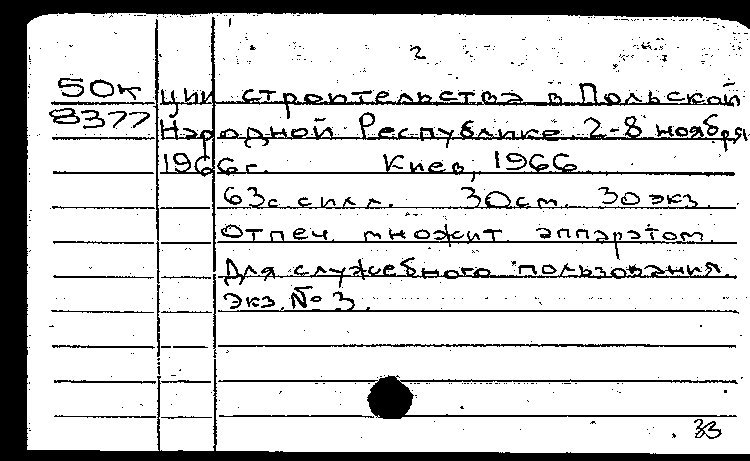 2
50к ции строительства в Польской
8377 Народной Республике 2-8 ноября
1966г. Киев, 1966
63с силл. 30см. 30 экз.
Отпеч. множит. аппаратом.
Для служебного пользования.
Экз. № 3.
33